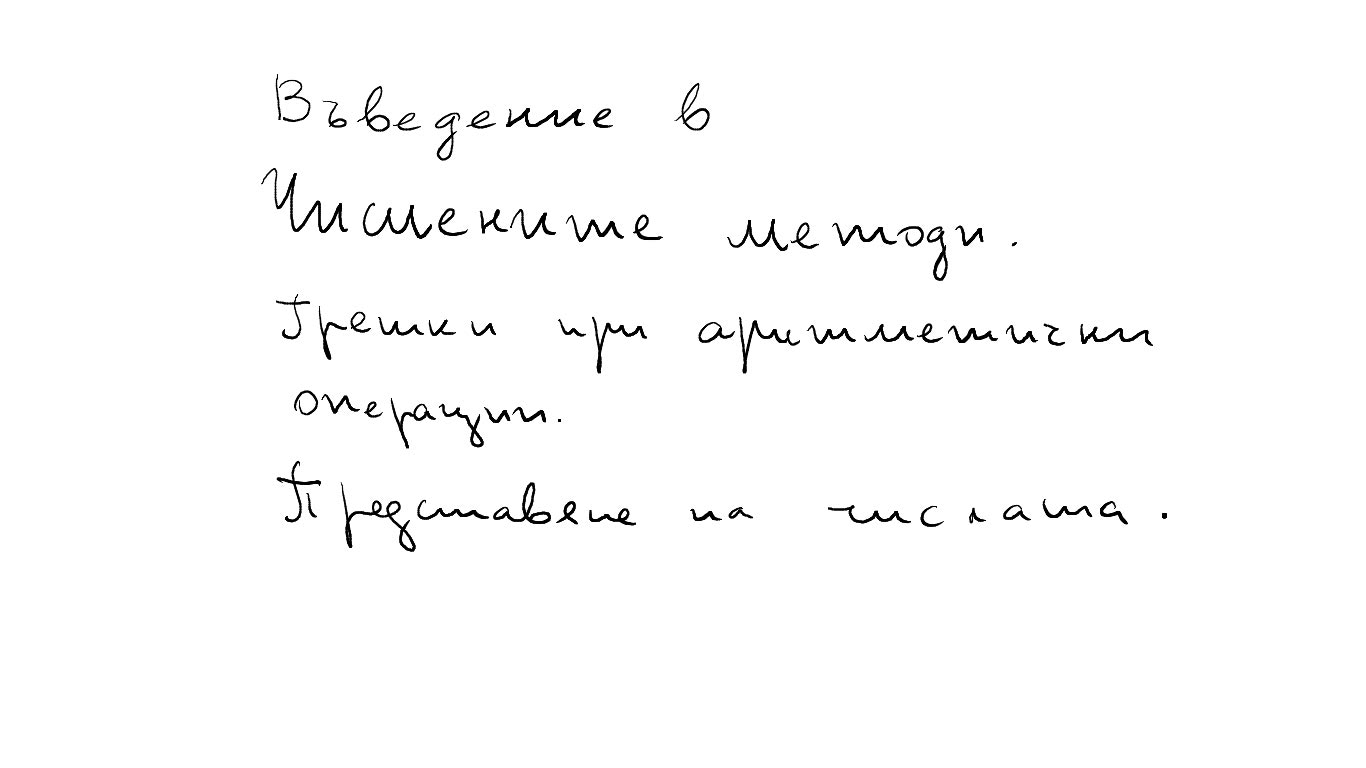 Въведение в
Числените методи.
Грешки при аритметични
операции.
Представяне на числата.